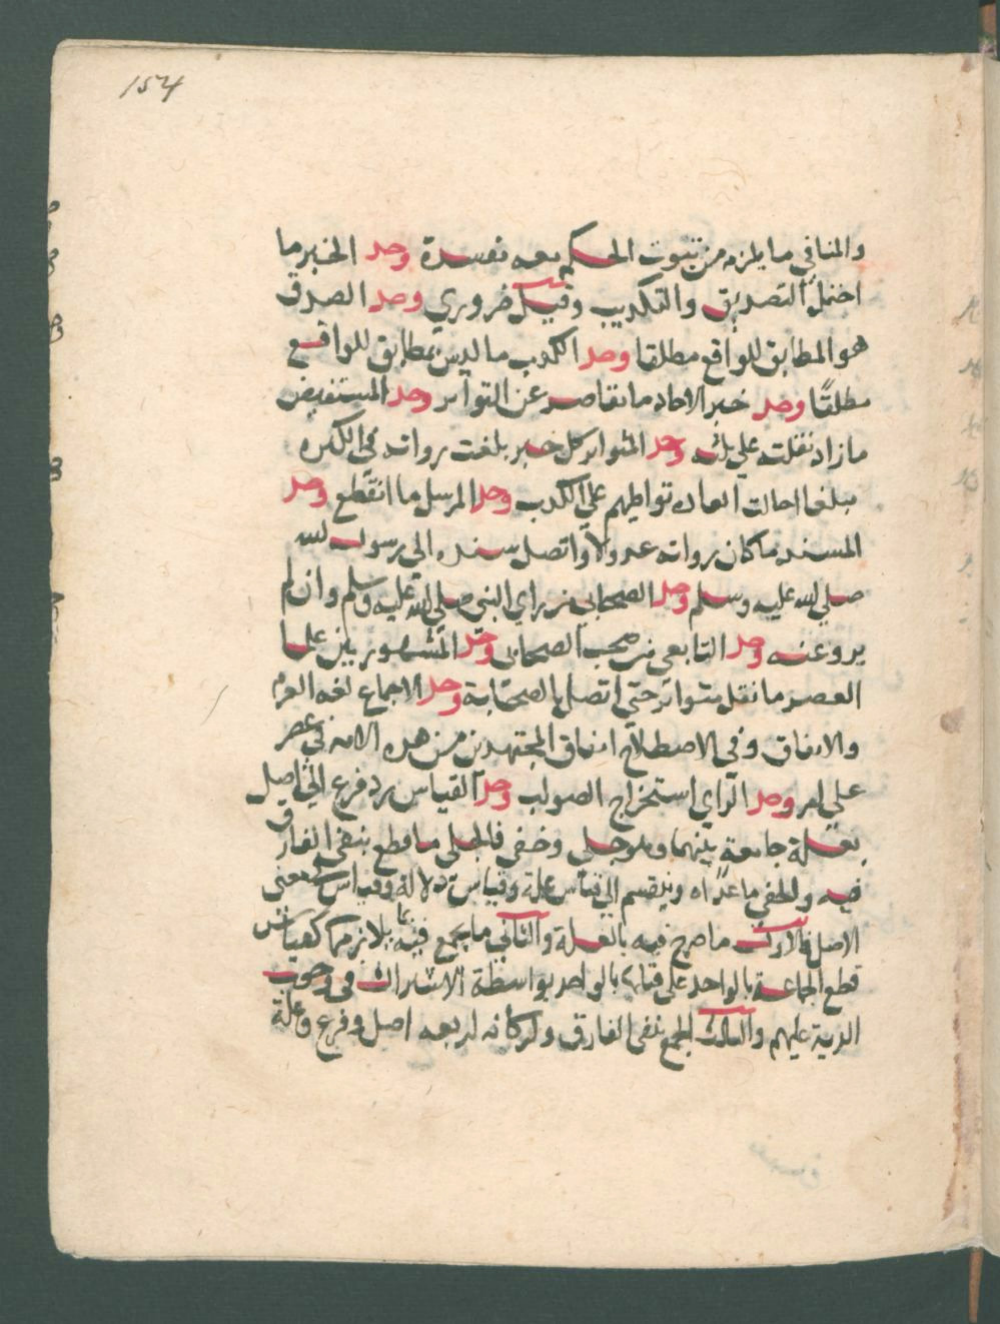 154
والمنافي ما يلزم من ثبوت الحكم معه مفسدة وحد الخبر ما
احتمل التصديق والتكذيب وقيل ضروري وحد الصدق
هو المطابق للواقع مطلقا وحد الكذب ما ليس بمطابق للواقع
مطلقًا وحد خبر الاحاد ما تقاصر عن التواتر وحد المستفيض
ما زاد نقلته على ثلث وحد المتواتر كل خبر بلغت رواته في الكثره
مبلغا احالت العاده تواطيهم على الكذب وحد المرسل ما انقطع وحد
المسند ما كان رواته عدولا واتصل سنده الى رسول الله
صلى الله عليه وسلم وحد الصحابي من راى النبي صلى الله عليه وسلم وان لم
يرو عنه وحد التابعي من صحب الصحابي وحد المشهور بين علما
العصر ما نقل متواتر حتى اتصل بالصحابة وحد الاجماع لغه العزم
والاتفاق وفي الاصطلاح اتفاق المجتهدين من هذه الامه في عصر
على امر وحد الراي استخراج الصواب وحد القياس رد فرع الى اصل
بعلة جامعة بينهما وهو جلي وخفي فالجلي ما قطع بنفي الفارق
فيه والخفي ما عداه وينقسم الى قياس علة وقياس دلالة وقياس في معنى
الاصل فالاول ما صرح فيه بالعلة والثاني ما يجمع فيه بلازمها كقياس
قطع الجماعة بالواحد على قتلها بالواحد بواسطة الاشتراك في وجوب
الدية عليهم والثالث الجمع بنفى الفارق واركانه اربعه اصل وفرع وعلة